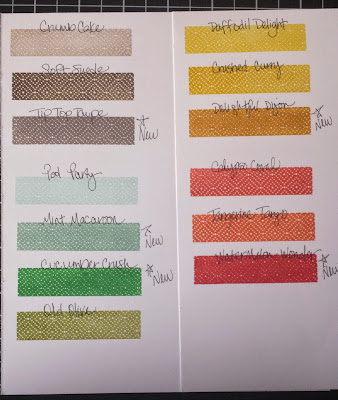 Crumb Cake
Soft Suede
Tip Top Taupe
New
Pool Party
Mint Macaroon
New
Cucumber Crush
New
Old Olive
Daffodil Delight
Crushed Curry
Delightful Dijon
New
Calypso Coral
Tangerine Tango
Watermelon Wonder
New